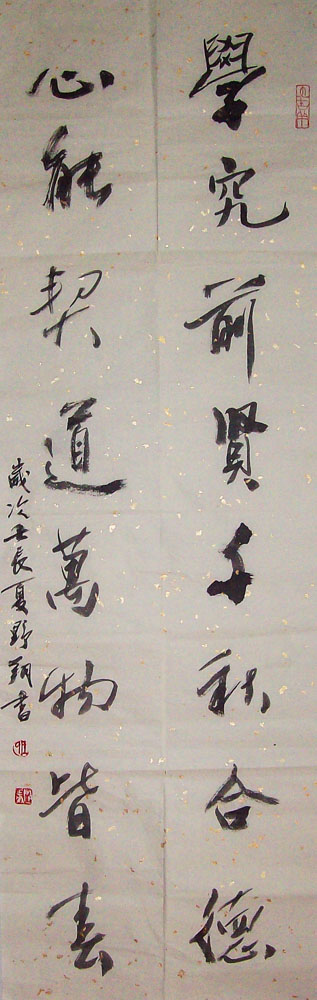 學究前賢千秋合德
心能契道萬物皆春
歲次壬辰夏野翔書